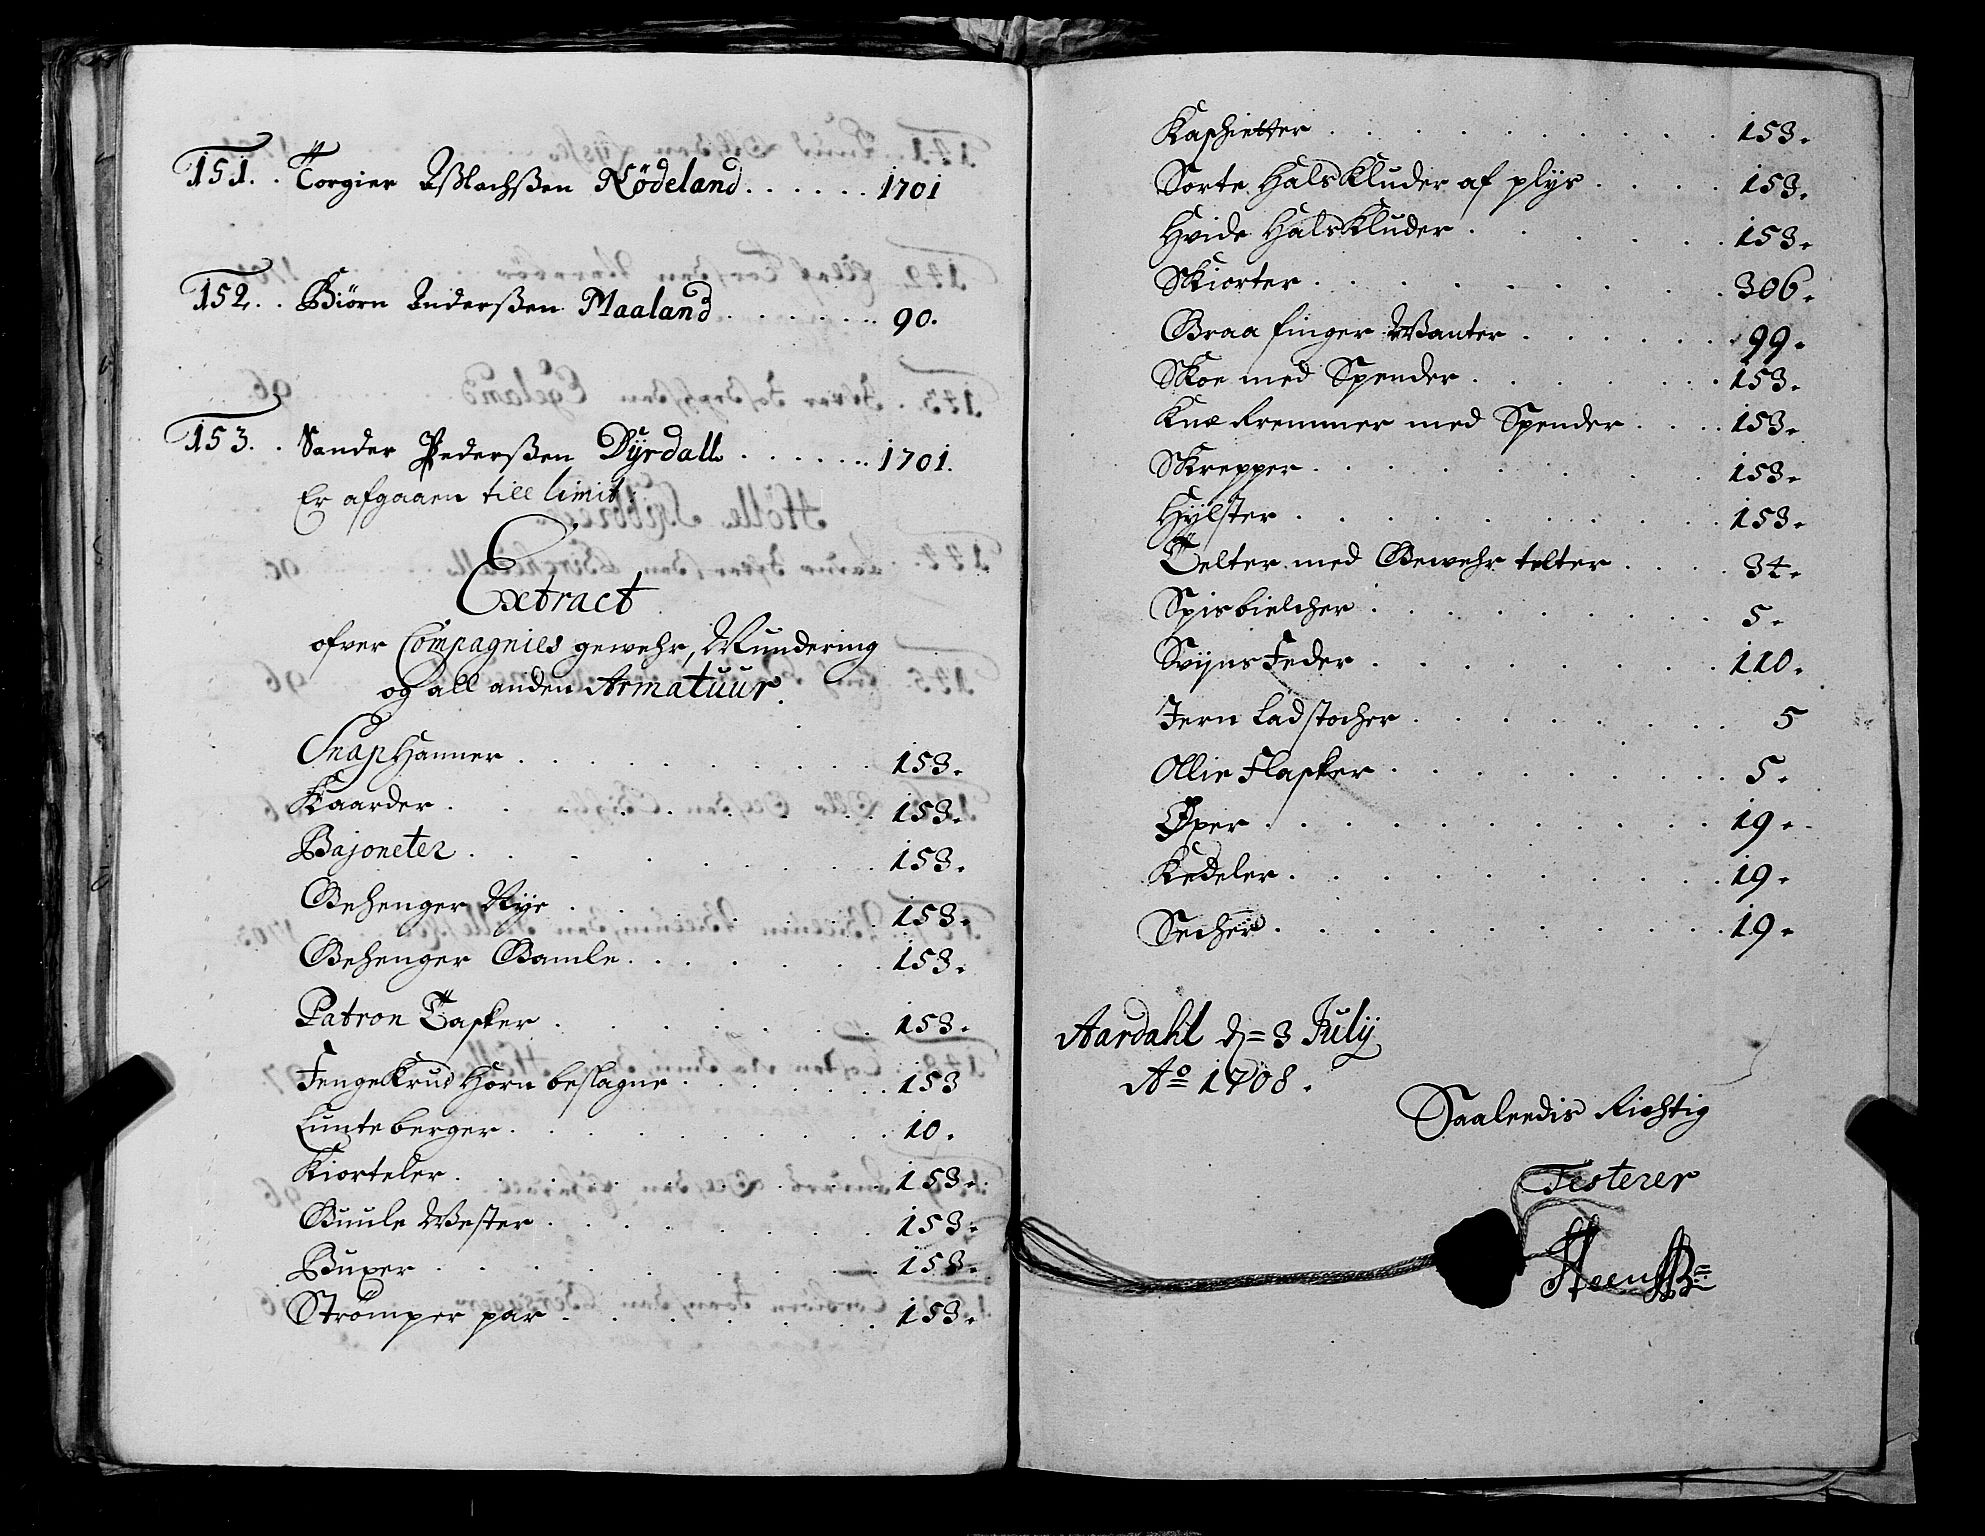 151. . Torgier Aßlachßen Nödeland . . . . . . 1701
152. . Biörn Anderßen Maaland . . . . . . . 90.
153. . Sander Pederßen Dÿrdall . . . . . . . 1701.
Er afgaaen till limit:
Extract
ofver Compagnies gewehr, Mundering
og all anden Armatuur.
SnapHanner . . . . . . . . . . 153.
Kaarder . . . . . . . . . . 153.
Bajoneter . . . . . . . . . 153.
Gehenger Nÿe . . . . . . . . 153.
Gehenger Gamle . . . . . . . 153.
Patron Tasker . . . . . . . 153.
FengeKrud Horn beslagne . . . . . 153
Lunteberger . . . . . . . . . 10.
Kiorteler . . . . . . . . . . 153.
Guule Wester . . . . . . . . 153.
Buxer . . . . . . . . . . 153.
Strömper par . . . . . . . . 153.
Kaskietter . . . . . . . . . . 153.
Sorte HalsKluder af plÿs . . . . 153.
Hvide HalsKluder . . . . . . . 153.
Skiorter . . . . . . . . . . 306.
Graa finger Wanter . . . . . . 99.
Skoe med Spender . . . . . . . 153.
Knæ Remmer med Spender . . . . 153.
Skrepper . . . . . . . . . 153.
Hÿlster . . . . . . . . . . 153.
Telter med Gewehr telter . . . . 34.
Spisbielcher . . . . . . . . . 5.
SvijnsFeder . . . . . . . . . 110.
Jern Ladstocher . . . . . . . . 5
Ollie Flasker . . . . . . . . . 5.
Öxer . . . . . . . . . . . 19.
Kedeler . . . . . . . . . . 19.
Secher . . . . . . . . . . 19.
Aardahl d= 3 Julÿ
Ao 1708.
Saaleedis Rigtig
Testerer